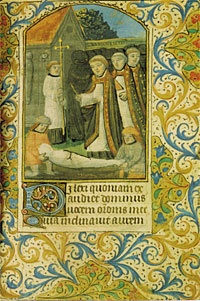 Dilexi quoniam ex
audiet dominus
uocem oronis mee
Quia inclinauit aurem